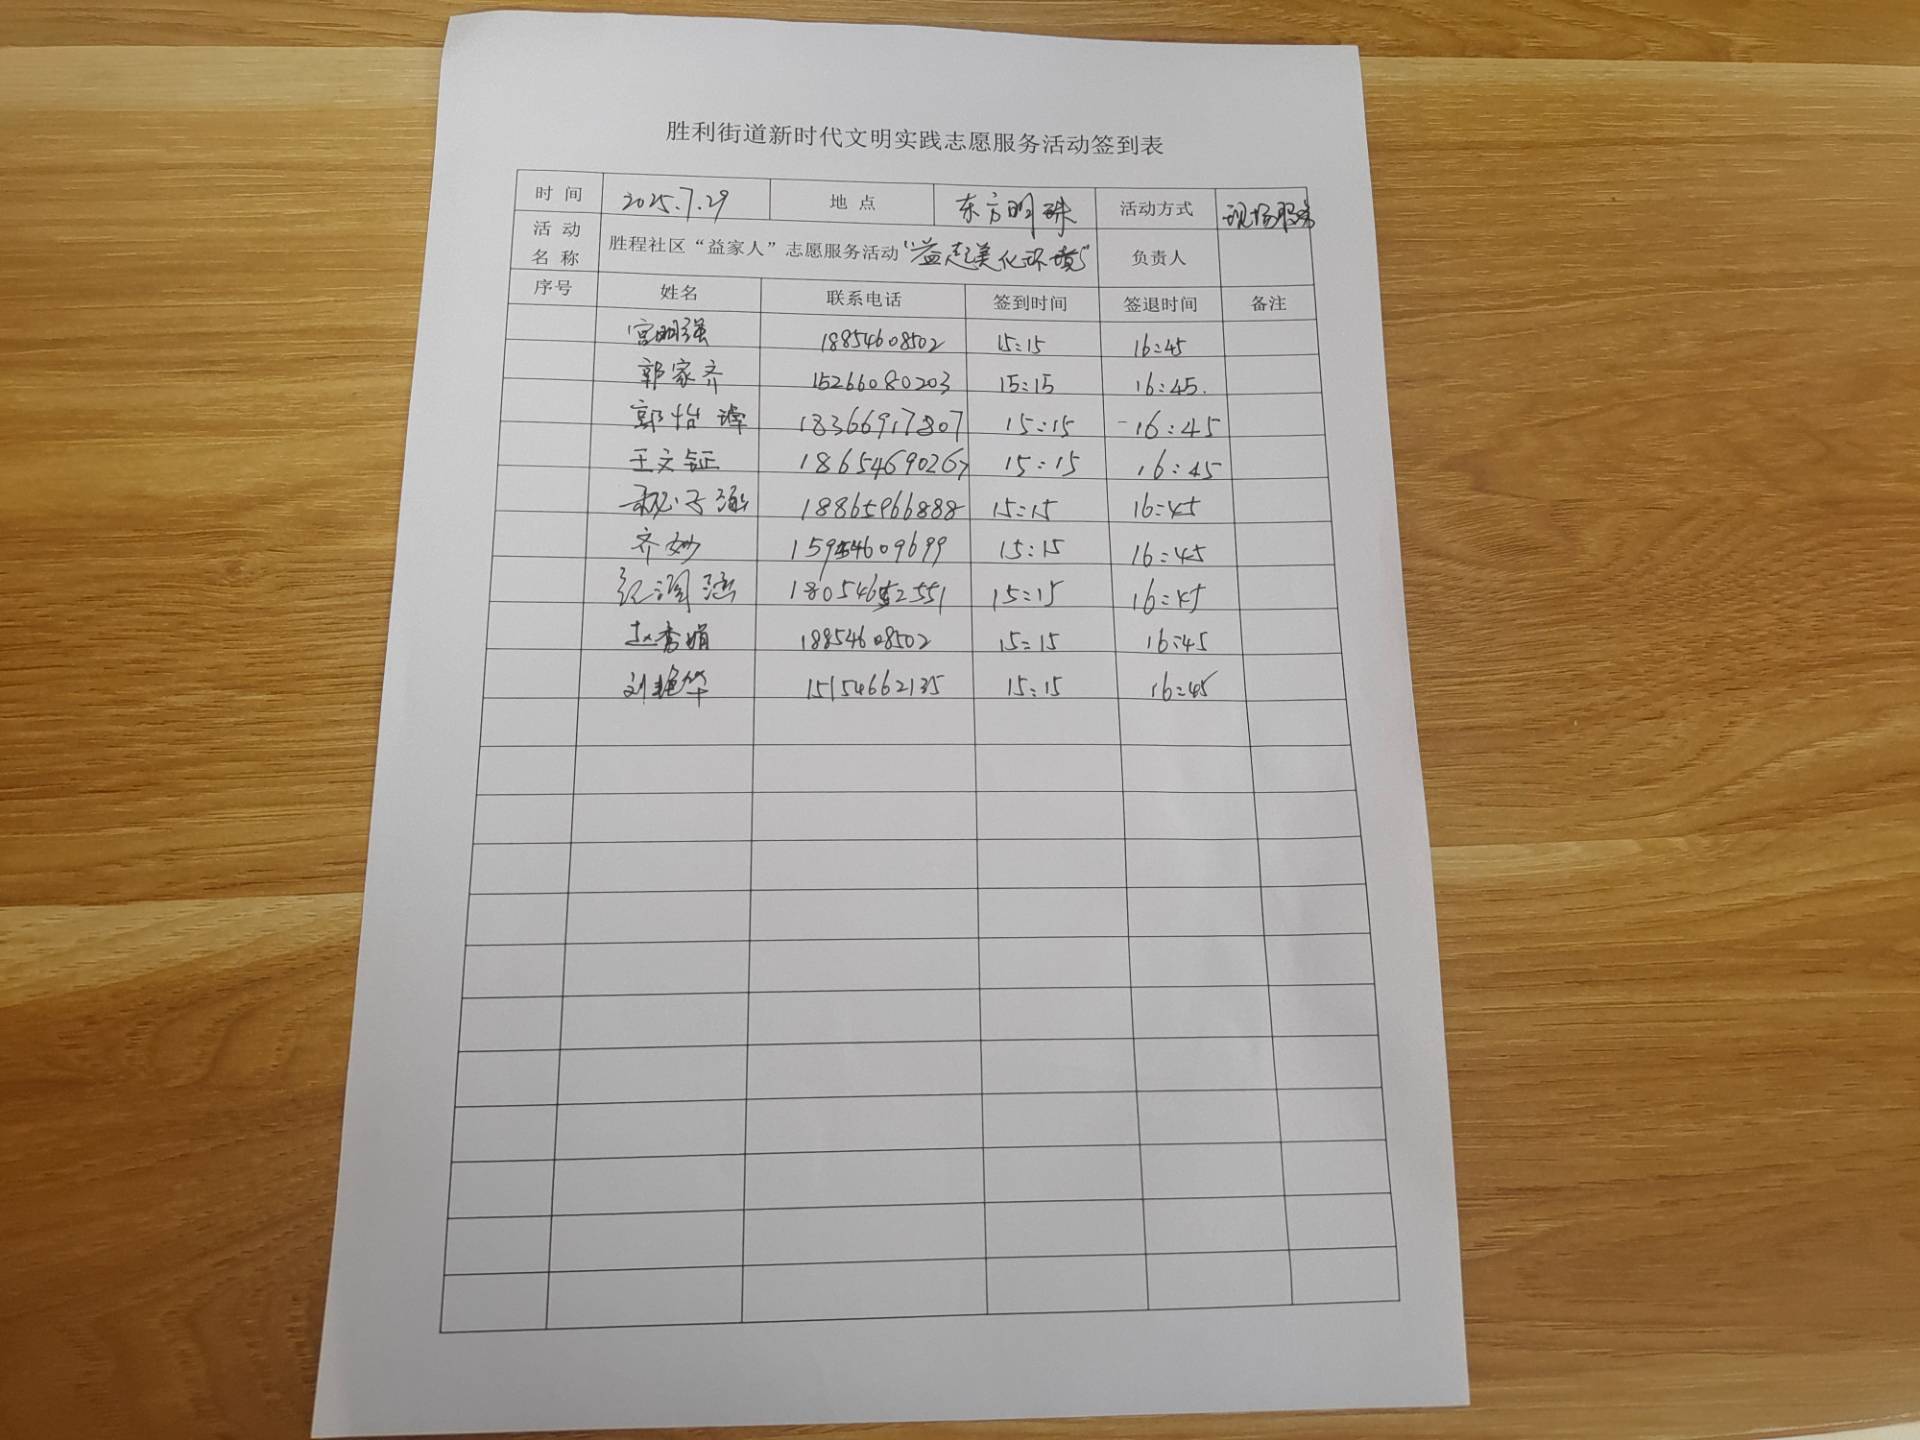 胜利街道新时代文明实践志愿服务活动签到表
时 间 2025.7.29 地 点 东方明珠 活动方式 现场服务
活 动 名 称 胜程社区“益家人”志愿服务活动“益起美化环境” 负责人
序号 姓名 联系电话 签到时间 签退时间 备注
宫明强 18854608502 15:15 16:45
郭家齐 15266080203 15:15 16:45.
郭怡 18366917807 15:15 16:45
王文钲 18654690267 15:15 16:45
子涵 18865966888 15:15 16:45
齐妙 15954609699 15:15 16:45
润涵 18054652551 15:15 16:45
赵秀娟 18854608502 15:15 16:45
刘艳华 15154662135 15:15 16:45